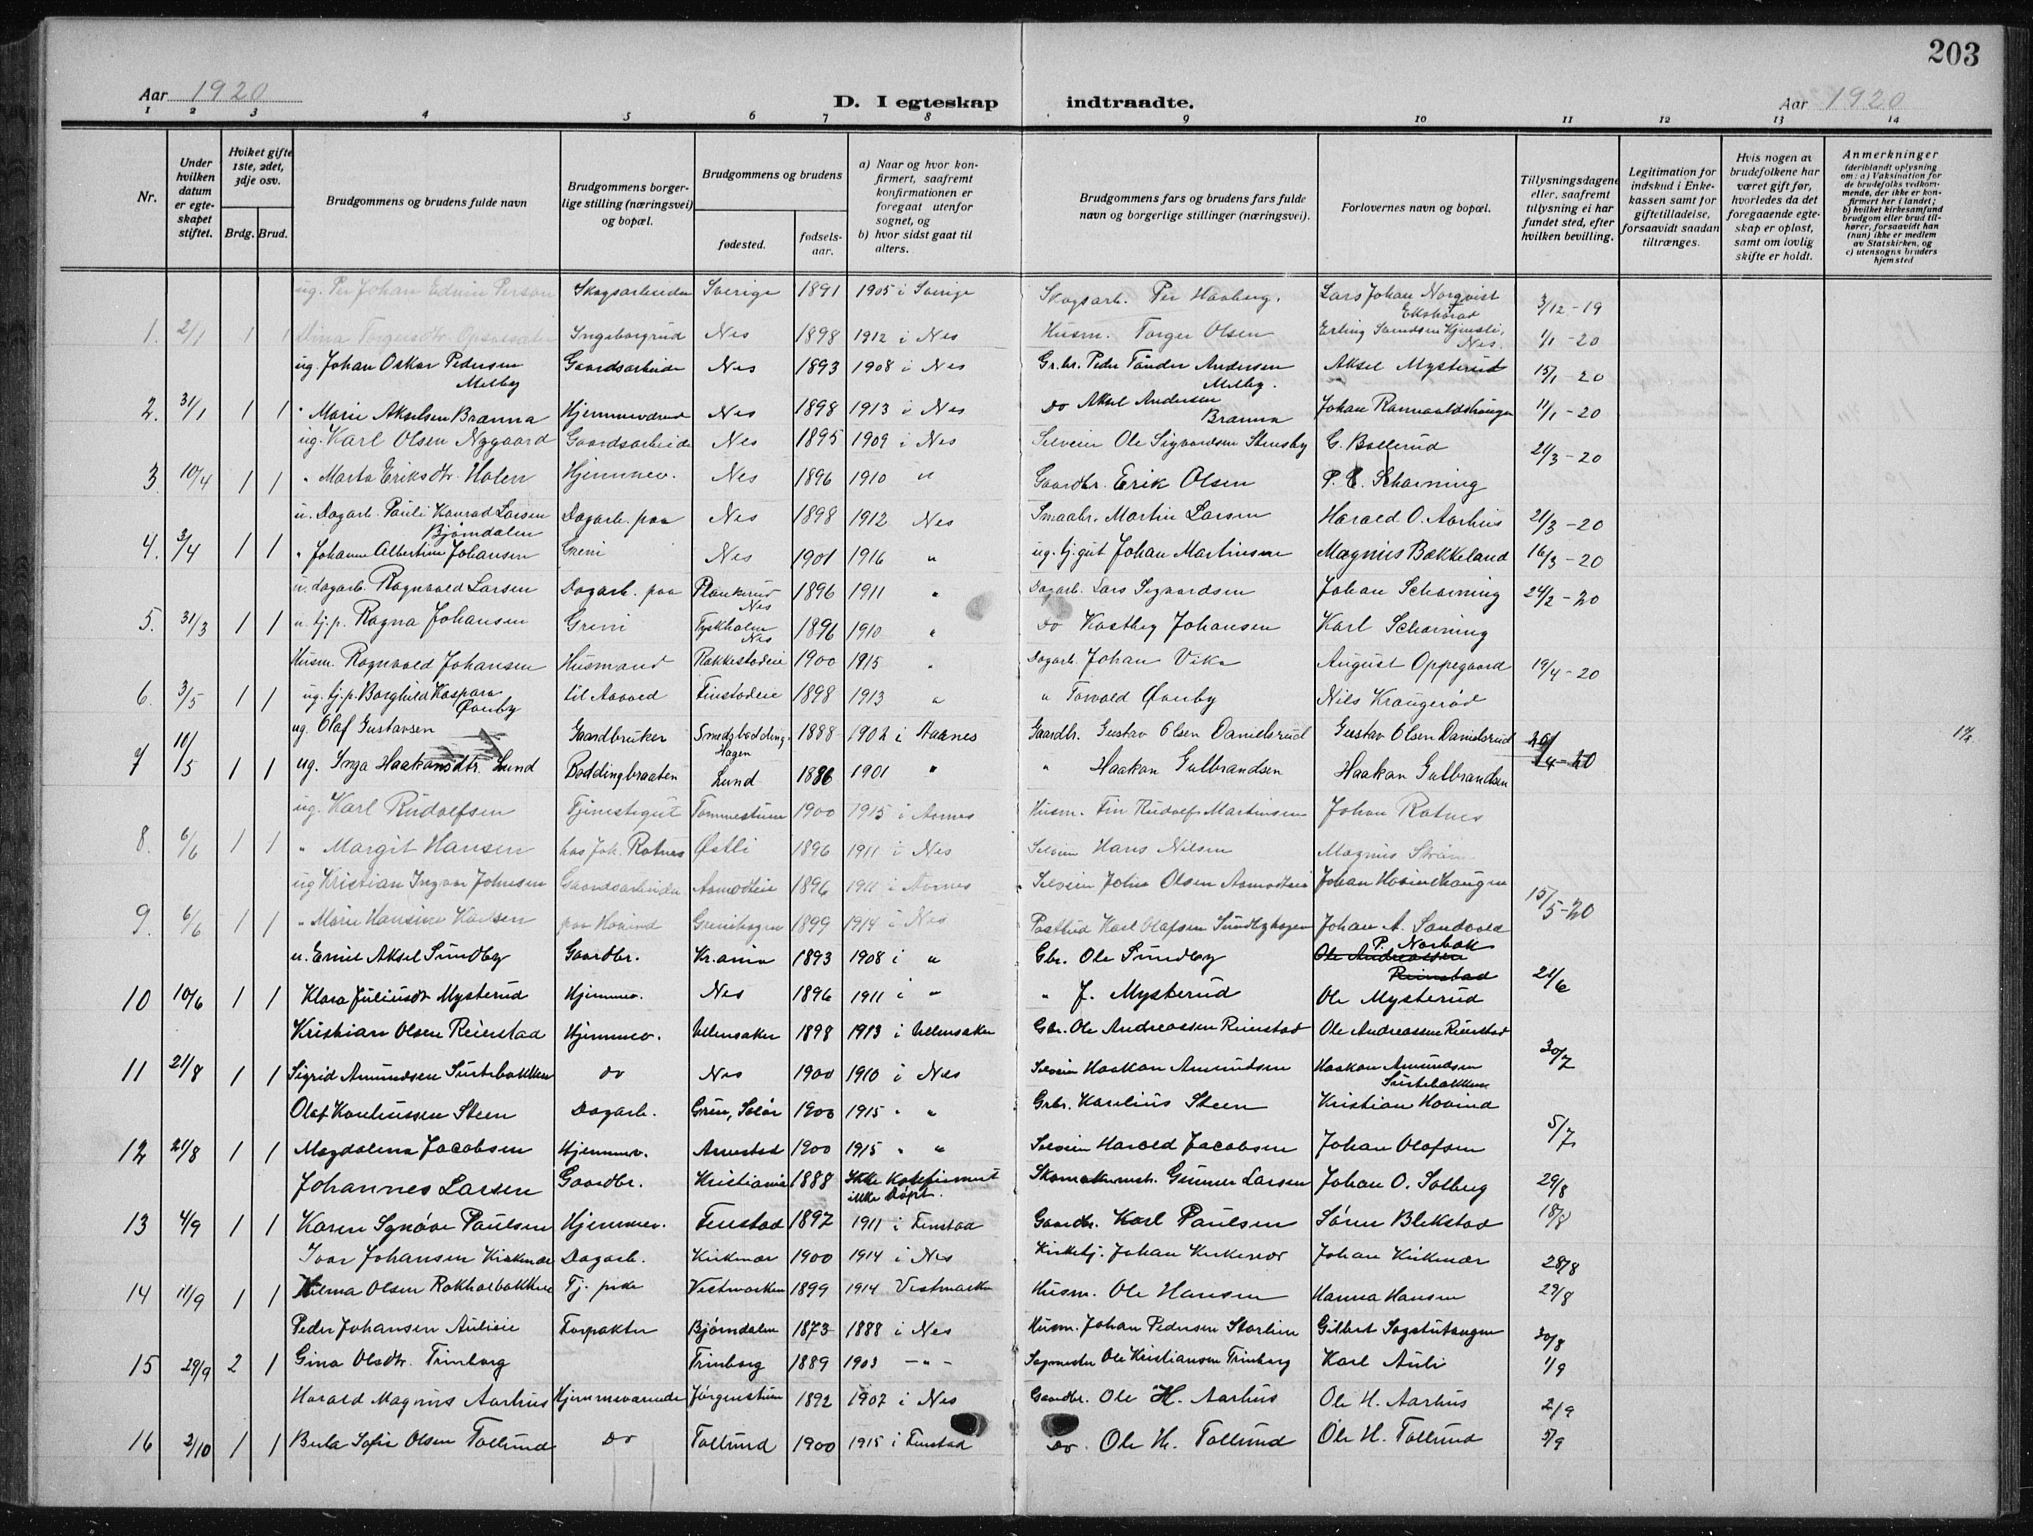 203
Aar 1920
D. I egteskap indtraadte.
Aar 1920
1 2 3 4 5 6 7 8 9 10 11 12 13 14
Nr.
Under hvilken datum er egteskapet stiftet.
Hviket gifte 1ste, 2det, 3dje osv.
Brdg. Brud.
Brudgommens og brudens fulde navn
Brudgommens borgerlige stilling (næringsvei) og bopæl.
Brudgommens og brudens
fødested.
fødselsaar.
a) Naar og hvor konfirmert, saafremt konfirmationen er foregaat utenfor sognet, og
b) hvor sidst gaat til alters.
Brudgommens fars og brudens fars fulde navn og borgerlige stillinger (næringsvei).
Forlovernes navn og bopæl.
Tillysningsdagene eller, saafremt tillysning ei har fundet sted, efter hvilken bevilling.
Legitimation for indskud i Enkekassen samt for giftetilladelse, forsaavidt saadan tiltrænges.
Hvis nogen av brudefolkene har været gift før, hvorledes da det foregaaende egteskap er opløst, samt om lovlig skifte er holdt.
Anmerkninger
(deriblandt oplysning om: a) Vaksination for de brudefolks vedkommende, der ikke er konfirmert her i landet; b) hvilket kirkesamfund brudgom eller brud tilhører, forsaavidt han (hun) ikke er medlem av Statskirken, og c) utensogns bruders hjemsted
ug. Per Johan Edvin Person Skogsarbeider Sverige 1891 1905 i Sverige Skogsarb. Per Haaberg. Lars Johan Norqvist 3/12-19
1. 2/1 1 1 Torgersdtr. Ingeborgrud Nes 1898 1912 i Nes Husm. Torger Olsen Erling Nes. 1/1-20
ug. Johan Oskar Pedersen Melby Gaardsarbeide Nes 1893 1908 i Nes Gr.br. Peder Tander Andersen Melby. Aksel Mysterud 15/1-20
2. 31/1 1 1 " Marie Akselsen Brænna Hjemmeværend Nes 1898 1913 i Nes do Aksel Andersen Brænna Johan 11/1-20
ug. Karl Olsen Nygaard Gaardsarbeide Nes 1895 1909 i Nes Selveier Ole Sigvardsen Stensby G. Bollerud 21/3-20
3. 10/4 1 1 " Marta Eriksdtr. Holen Hjemmev. Nes 1896 1910 " Gaardbr. Erik Olsen P. E. Scharning
u. Dagarb. Pauli Konrad Larsen Bjørndalen Dagarb. paa Nes 1898 1912 Nes Smaabr. Martin Larsen Harald O. Aarhus 21/3-20
4. 3/4 1 1 " Johanne Albertine Johansen Greni Nes 1901 1916 " ug. tj.gut Johan Martinsen Magnus Bækkeland 16/3-20
u. dagarb. Ragnvald Larsen Dagarb. paa Plankerud Nes 1896 1911 " Dagarb. Lars Sigvardsen Johan Scharning 24/2-20
5. 31/3 1 1 u. tj.p. Ragna Johansen Greni Tyskholm Nes 1896 1910 " do Kastby Johansen Karl Scharning
Husm. Ragnvald Johansen Husmand Rakkestadeie 1900 1915 " Dagarb. Johan Vika August Oppegaard 19/4-20
6. 3/5 1 1 ug. tj.p. Borghild Kaspara Øvenby til Aavold Finstadeie 1898 1913 " " Torvald Øvenby Nils Kraugerød
ug. Olaf Gustavsen Gaardbruker Smedsboddinghagen 1888 1902 i Aarnes Gaardbr. Gustav Olsen Danielsrud Gustav Olsen Danielsrud 20/4-20
7 10/5 1 1 ug. Inga Haakansdtr. Lund Boddingbraaten Lund 1886 1901 " " Haakan Gulbrandsen Haakan Gulbrandsen
ug. Karl Rudolfsen Tjenestegut Tommestuen 1900 1915 i Aarnes Husm. Fin Rudolf Martinsen Johan Ratnes
8. 6/6 1 1 " Margit Hansen hos Joh. Ratnes Østli 1896 1911 i Nes Selveier Hans Nilsen Magnus Strøm
ug Kristian Ingvar Johnsen Gaardsarbeider Aamodteie 1896 1911 i Aarnes Selveier John Olsen Aamodteie Johan Hovindhaugen 15/5-20
9. 6/6 1 1 " Marie Hansine Karlsen paa Hovind Grenihagen 1899 1914 i Nes Postbud Karl Olafsen Sundbyhagen Johan A. Sandvold
u. Emil Aksel Sundby Gaardbr. Kr.ania 1893 1908 i " Gbr. Ole Sundby P. Norbak Ole Andreassen Reinstad 21/6
10 10/6 1 1 Klara Juliusdtr Mysterud Hjemmev. Nes 1896 1911 i " " J. Mysterud Ole Mysterud
Kristian Olsen Reinstad Hjemmev. Ullensaker 1898 1913 i Ullensaker Gbr. Ole Andreassen Reinstad Ole Andreassen Reinstad 30/7
11 21/8 1 1 Sigrid Amundsen Sustebakken do Nes 1900 1910 i Nes Selveier Haakan Amundsen Haakan Amundsen Sustebakken
Olaf Kareliussen Steen Dagarb. Grue, Solør 1900 1915 " " Grbr. Karelius Steen Kristian Hovind 5/7
12 21/8 1 1 Magdalena Jacobsen Hjemmev. Arnestad 1900 1915 " " Selveier Harald Jacobsen Johan Olafsen
Johannes Larsen Gaardbr. Kristiania 1888 Ikke Konfirmert ikke døpt. Skomakermstr. Gunner Larsen Johan O. Solberg 29/8
13 4/9 1 1 Karen Synøve Paulsen Hjemmev. Fenstad 1897 1911 i Fenstad Gaardbr. Karl Paulsen Søren Blekstad 18/8
Ivar Johansen Kirkenær Dagarb. Kirkenær 1900 1914 i Nes Kirketj. Johan Kirkenær Johan Kirkenær 28/8
14 11/9 1 1 Helma Olsen Rakkolbakken Tj. pike Vestmarken 1899 1914 Vestmarken Husm. Ole Hansen Hanna Hansen 29/8
Peder Johansen Aulieie Forpakter Bjørndalen 1873 1888 i Nes Husm. Johan Pedersen Storlien Gilbert Sagstutangen 30/8
15 29/9 2 1 Gina Olsdtr. Trinborg Trinborg 1889 1903 -"- Sagmester Ole Kristiansen Trinborg Karl Auli 1/9
Harald Magnus Aarhus Hjemmeværende Jørgenstuen 1892 1907 i Nes Gaardbr. Ole H. Aarhus Ole H. Aarhus 2/9
16 2/10 1 1 Berta Sofie Olsen Tollund Do Tollund 1900 1915 i Fenstad Do. Ole H. Tollund Ole H. Tollund 5/9